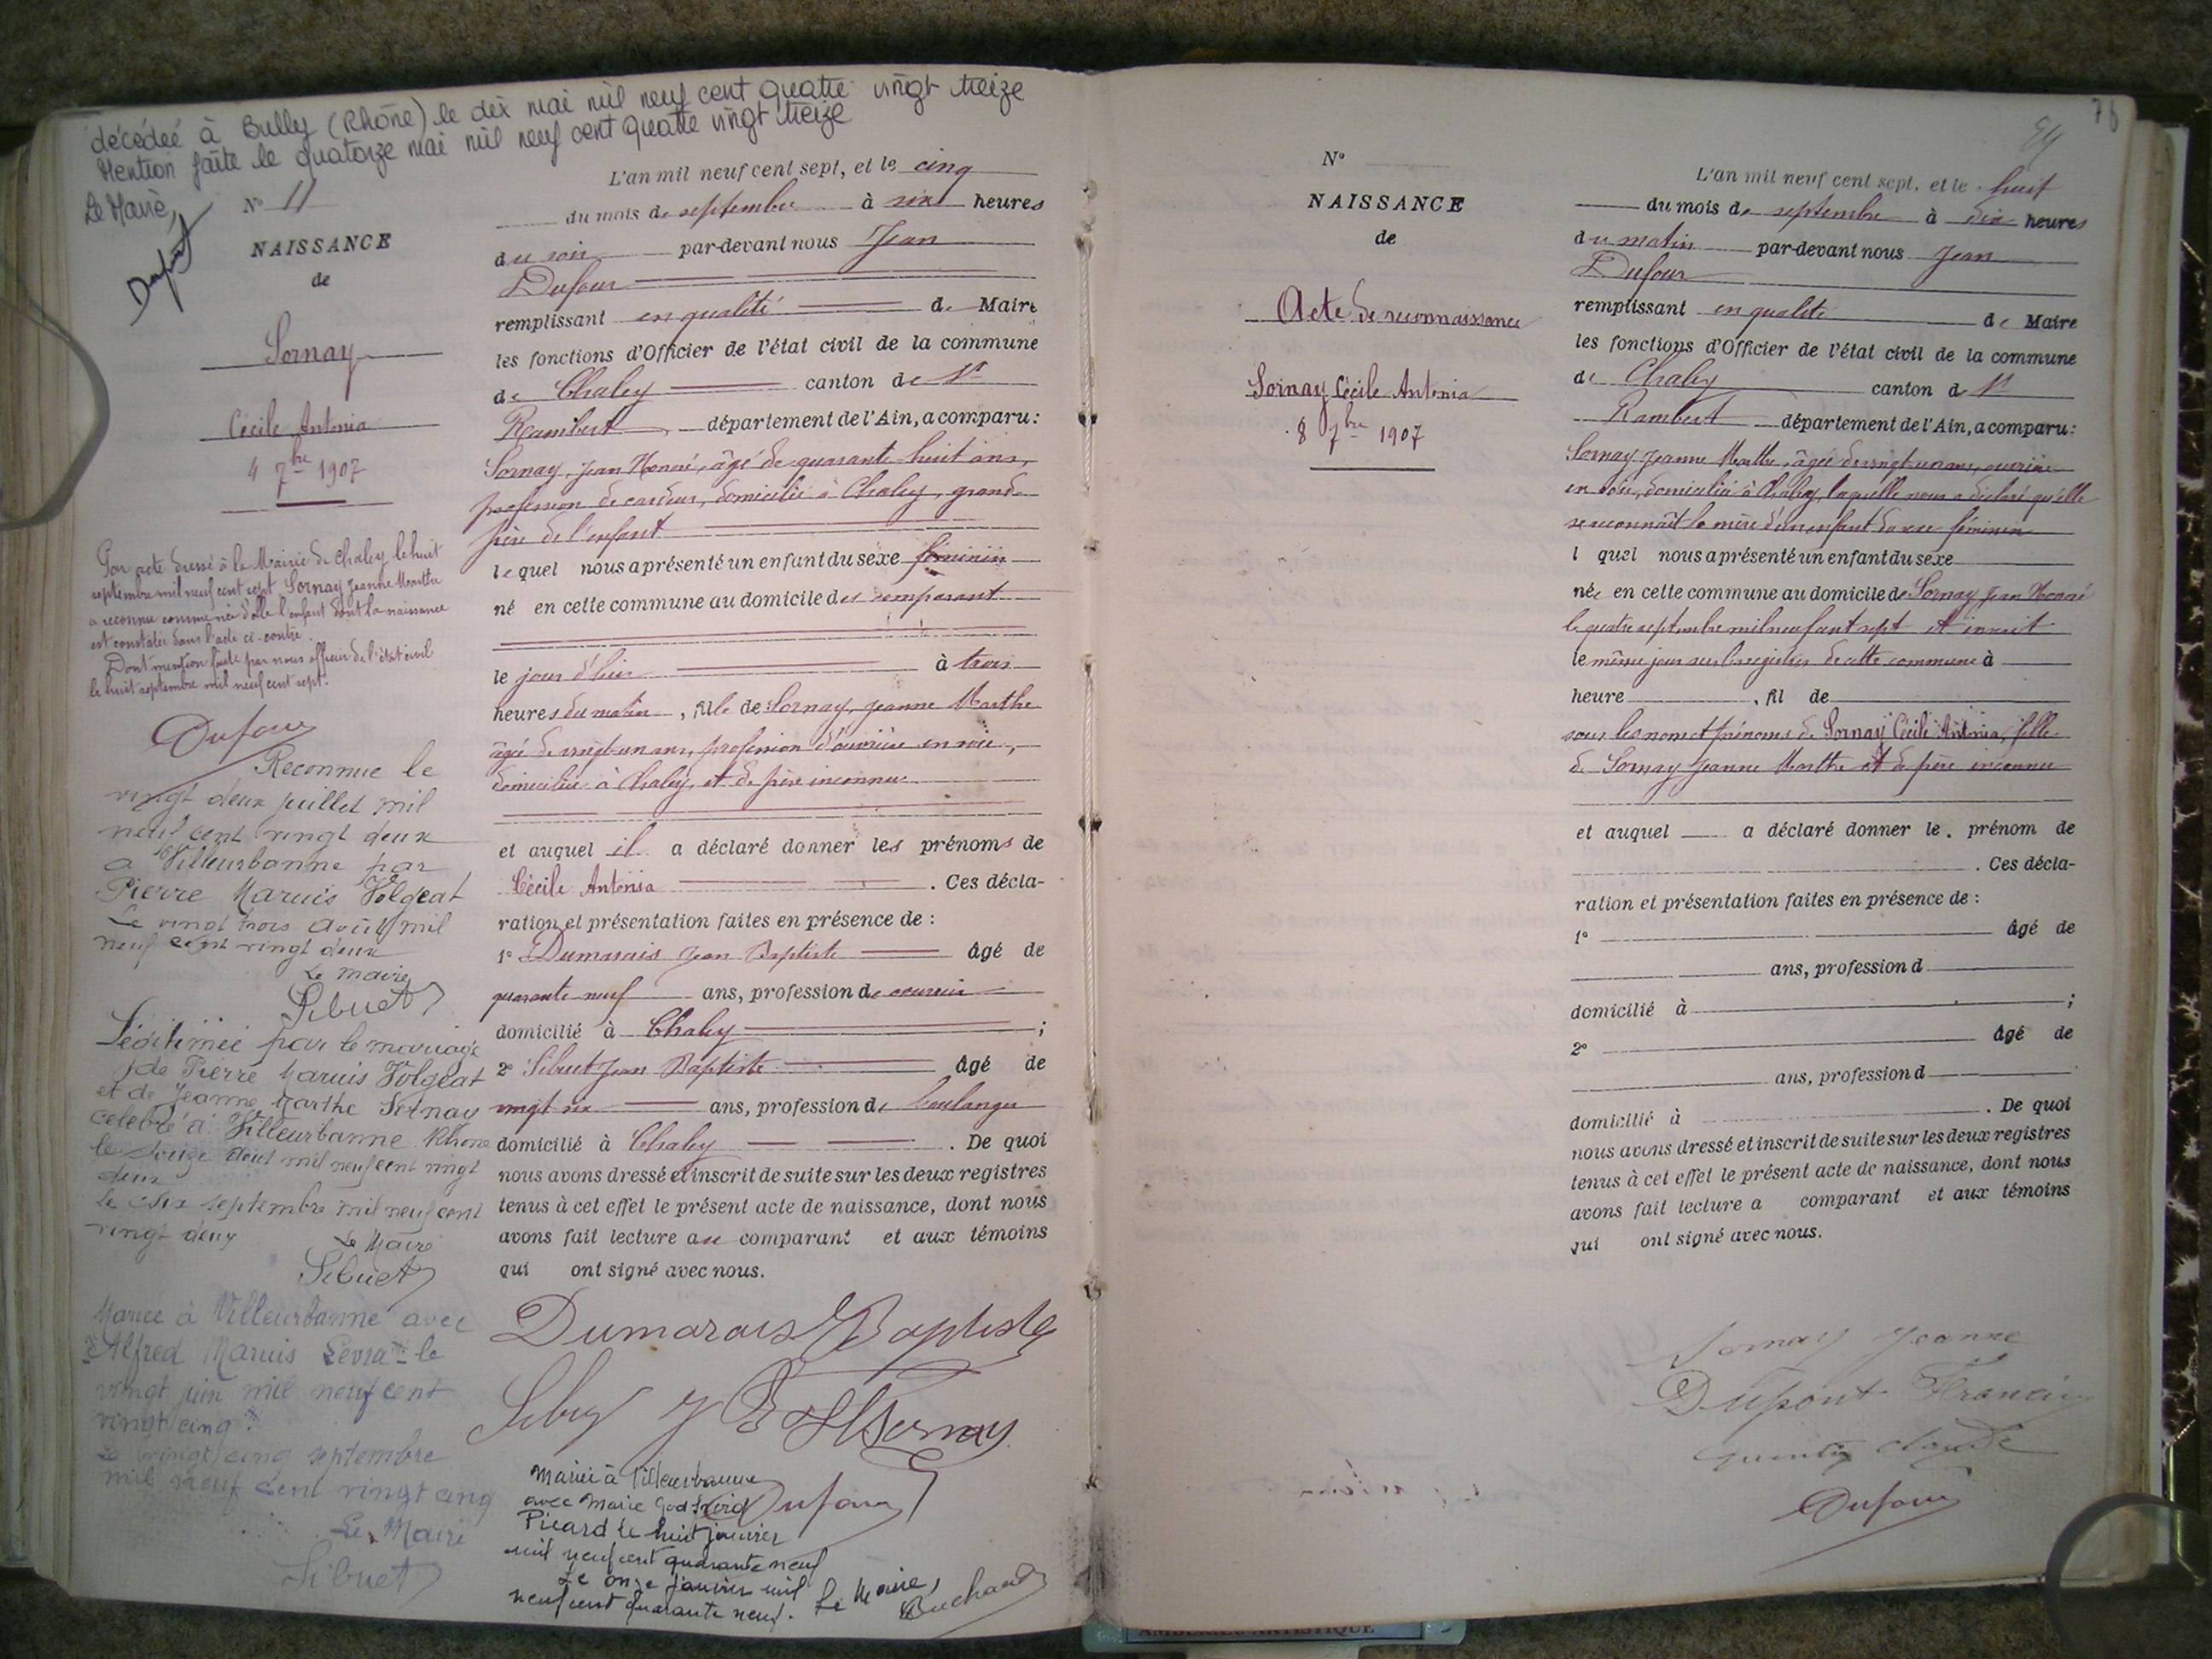 décédée à Bully (Rhône) le dix mai mil neuf cent quatre vingt treize
Mention faite le quatorze mai mil neuf cent quatre vingt treize
Le Maire,
N° 11
NAISSANCE
de
Sornay
Cécile Antonia
4 7bre 1907
Par acte dressé à la Mairie de Chaley le huit
septembre mil neuf cent sept Sornay Jeanne Marthe
a reconnu comme née d'elle l'enfant dont la naissance
est constatée dans l'acte ci-contre.
Dont mention faite par nous officier de l'état civil
le huit septembre mil neuf cent sept.
Dufour
Reconnue le
vingt deux juillet mil
neuf cent vingt deux
a Villeurbanne par
Pierre Marius Volgeat
Le vingt trois Août mil
neuf cent vingt deux
Le maire
Sibuet
Légitimée par le mariage
de Pierre Marius Volgeat
et de Jeanne Marthe Sornay
célébré à Villeurbanne Rhône
le douze août mil neuf cent vingt
deux
Le dix septembre mil neuf cent
vingt deux
Le Maire
Sibuet
Mariée à Villeurbanne avec
Alfred Marius Levrat le
vingt juin mil neuf cent
vingt cinq
Le vingt cinq septembre
mil neuf cent vingt cinq
Le Maire
Sibuet
L'an mil neuf cent sept, et le cinq
du mois de septembre à six heures
du soir par-devant nous Jean
Dufour
remplissant en qualité de Maire
les fonctions d'Officier de l'état civil de la commune
de Chaley canton de St
Rambert département de l'Ain, a comparu:
Sornay, Jean Honoré, âgé de quarante huit ans,
profession de cardeur, domicilié à Chaley, grand-
père de l'enfant
lequel nous a présenté un enfant du sexe féminin
né en cette commune au domicile du comparant
le jour d'hier à trois
heures du matin, fille de Sornay, Jeanne Marthe
âgée de vingt un ans, profession d'ouvrière en soie,
domiciliée à Chaley, et de père inconnu
et auquel il a déclaré donner les prénoms de
Cécile Antonia. Ces décla-
ration et présentation faites en présence de :
1° Dumarais Jean Baptiste âgé de
quarante neuf ans, profession de
domicilié à Chaley ;
2° Sibuet Jean Baptiste âgé de
vingt six ans, profession de boulanger
domicilié à Chaley. De quoi
nous avons dressé et inscrit de suite sur les deux registres
tenus à cet effet le présent acte de naissance, dont nous
avons fait lecture au comparant et aux témoins
qui ont signé avec nous.
Dumarais Baptiste
Sibuet J B JH Sornay
Dufour
Mariée à Villeurbanne
avec Marie
Picard le huit janvier
mil neuf cent quarante neuf
Le onze janvier mil
neuf cent quarante neuf. Le Maire,
76
N°
NAISSANCE
de
Acte de reconnaissance
Sornay Cécile Antonia
8 7bre 1907
L'an mil neuf cent sept, et le huit
du mois de septembre à dix heures
du matin par-devant nous Jean
Dufour
remplissant en qualité de Maire
les fonctions d'Officier de l'état civil de la commune
de Chaley canton de St
Rambert département de l'Ain, a comparu:
Sornay Jeanne Marthe, âgée de vingt un ans, ouvrière
en soie, domiciliée à Chaley, laquelle nous a déclaré qu'elle
se reconnaît la mère d'un enfant du sexe féminin
l quel nous a présenté un enfant du sexe
née en cette commune au domicile de Sornay Jean Honoré
le quatre septembre mil neuf cent sept et inscrit
le même jour sur les registres de cette commune à
heure , fil de
sous les nom et prénoms de Sornay Cécile Antonia, fille
de Sornay Jeanne Marthe et de père inconnu
et auquel a déclaré donner le . prénom de
. Ces décla-
ration et présentation faites en présence de :
1° âgé de
ans, profession d
domicilié à ;
2° âgé de
ans, profession d
domicilié à . De quoi
nous avons dressé et inscrit de suite sur les deux registres
tenus à cet effet le présent acte de naissance, dont nous
avons fait lecture a comparant et aux témoins
qui ont signé avec nous.
Sornay Jeanne
Dupont Francis
Claude
Dufour